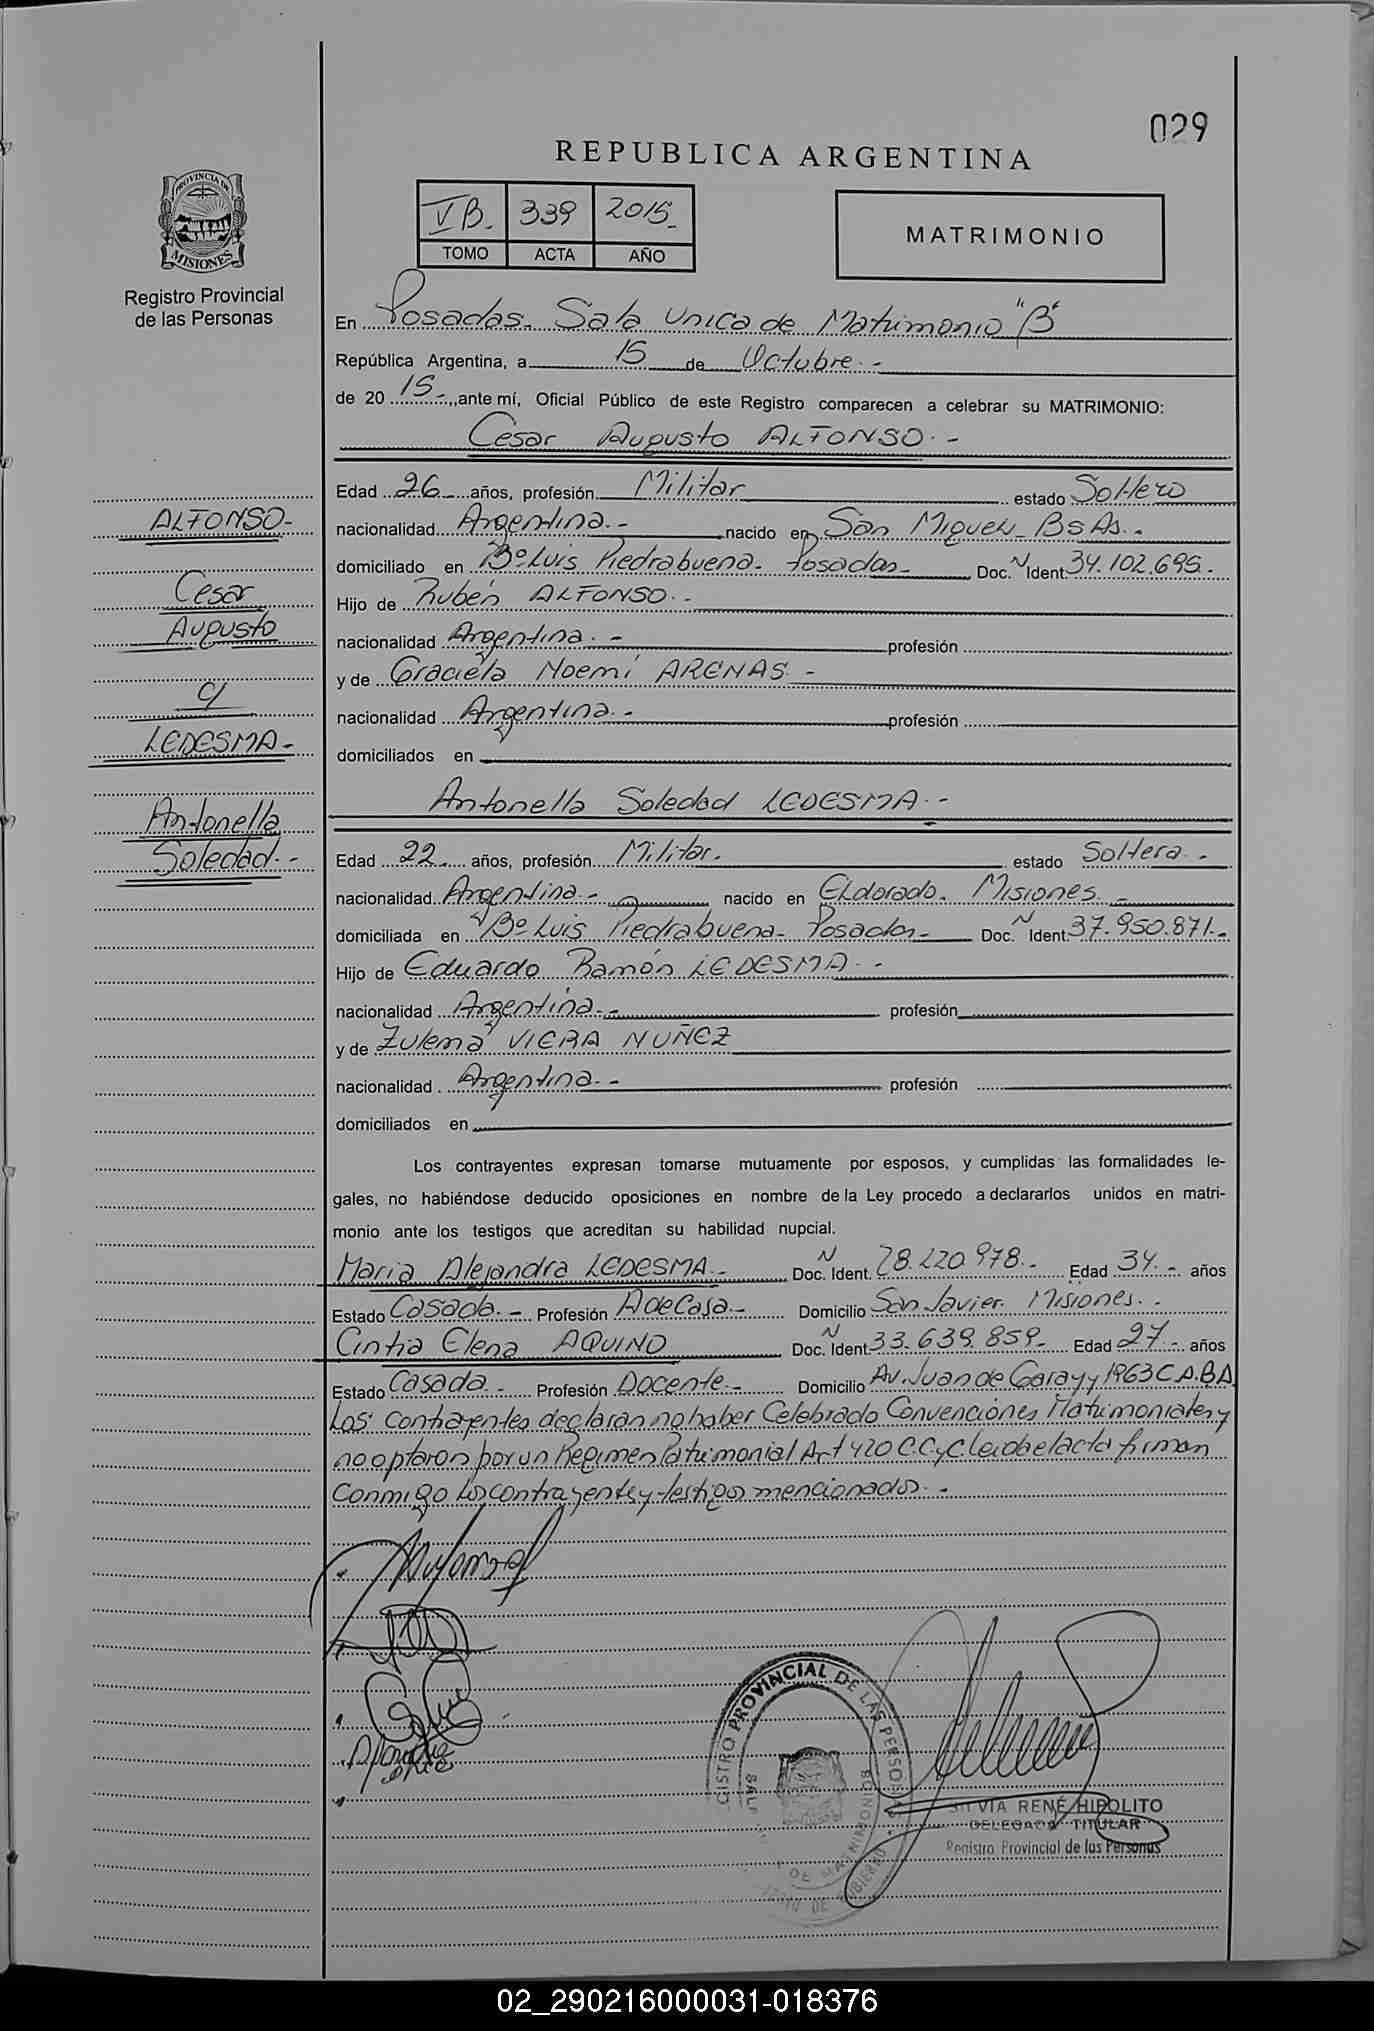 029
REPUBLICA ARGENTINA
PROVINCIA DE
MISIONES
Registro Provincial
de las Personas
VB. 339 2015.
TOMO ACTA AÑO
MATRIMONIO
En Posadas. Sala Unica de Matrimonio "B"
República Argentina, a 15 de Octubre.-
de 20 15-, ante mí, Oficial Público de este Registro comparecen a celebrar su MATRIMONIO:
Cesar Augusto ALFONSO.-
Edad 26 años, profesión Militar estado Soltero
nacionalidad Argentina.- nacido en San Miguel- Bs As.-
domiciliado en Bº Luis Piedrabuena- Posadas- Doc. N Ident. 34.102.695.-
Hijo de Rubén ALFONSO.-
nacionalidad Argentina.- profesión
y de Graciela Noemí ARENAS.-
nacionalidad Argentina.- profesión
domiciliados en
Antonella Soledad LEDESMA.-
Edad 22 años, profesión Militar. estado Soltera.-
nacionalidad Argentina.- nacido en Eldorado. Misiones.-
domiciliada en Bº Luis Piedrabuena- Posadas- Doc. N Ident. 37.950.871.-
Hijo de Eduardo Ramón LEDESMA.-
nacionalidad Argentina.- profesión
y de Zulema VIERA NUÑEZ
nacionalidad Argentina.- profesión
domiciliados en
Los contrayentes expresan tomarse mutuamente por esposos, y cumplidas las formalidades le-
gales, no habiéndose deducido oposiciones en nombre de la Ley procedo a declararlos unidos en matri-
monio ante los testigos que acreditan su habilidad nupcial.
Maria Alejandra LEDESMA.- Doc. N Ident. 28.220.978.- Edad 34.- años
Estado Casada.- Profesión A de Casa.- Domicilio San Javier. Misiones.-
Cintia Elena AQUINO Doc. N Ident. 33.639.859- Edad 27.- años
Estado Casada.- Profesión Docente.- Domicilio Av. Juan de Garay y 1963 C.A.B.A
Los contrayentes declaran no haber Celebrado Convenciones Matrimoniales y
no optaron por un Regimen Patrimonial Art 420 C.C.y C. Leida el acta firman
Conmigo los contrayentes y testigos mencionados.-
ALFONSO-
Cesar
Augusto
c/
LEDESMA-
Antonella
Soledad.-
REGISTRO PROVINCIAL DE LAS PERSONAS
DE MATRIMONIOS
SILVIA RENÉ HIPOLITO
DELEGADA TITULAR
Registro Provincial de las Personas
02_290216000031-018376